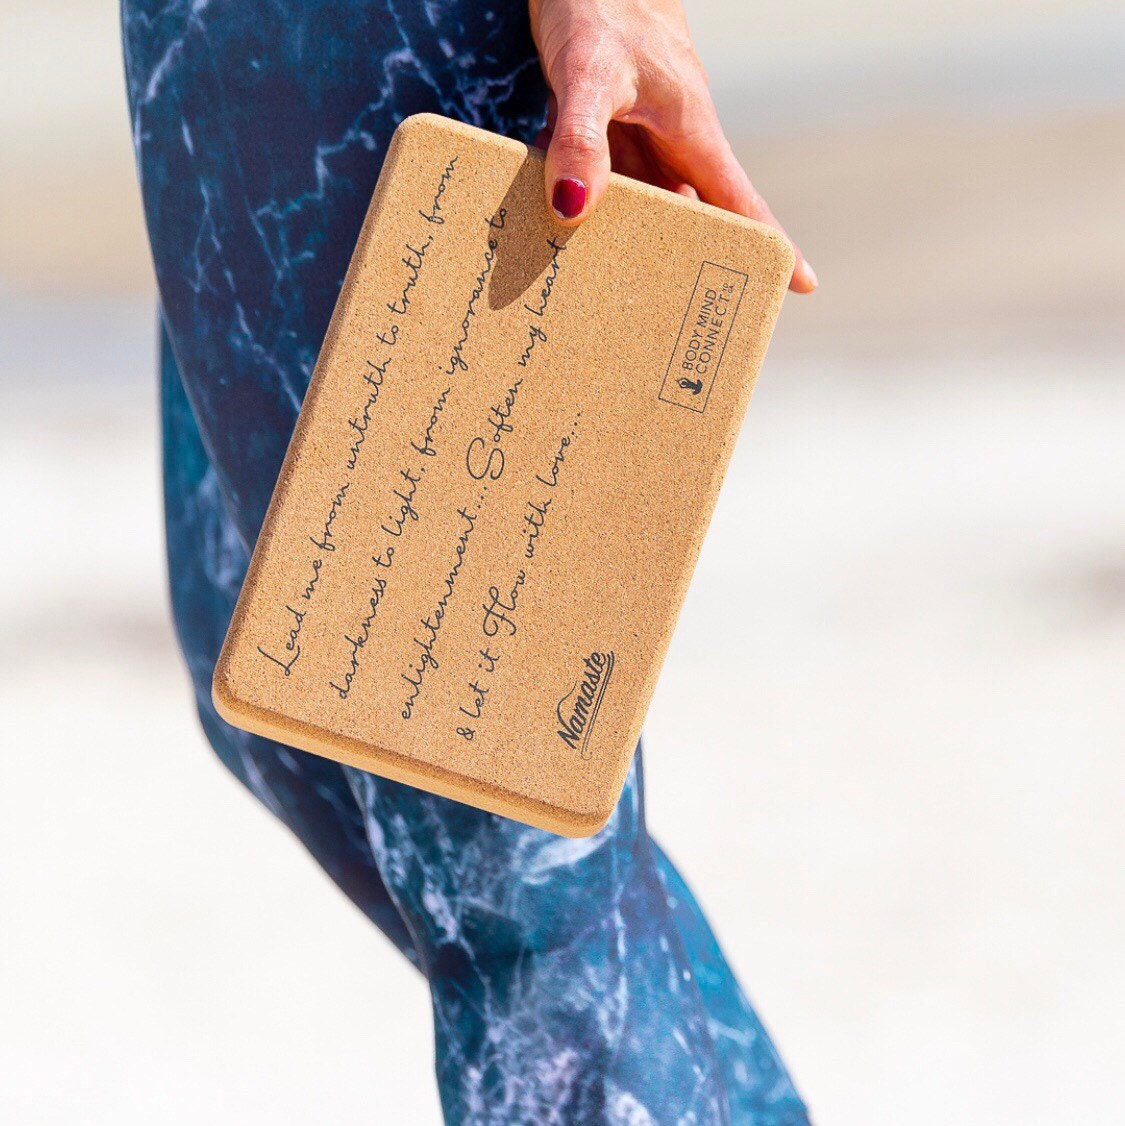 Lead me from untruth to truth, from
darkness to light, from ignorance to
enlightenment... Soften my heart
& let it Flow with love...
Namaste
BODY MIND
CONNECT